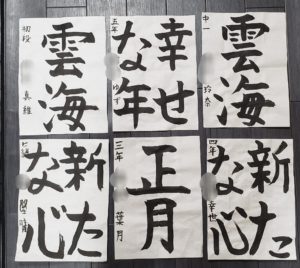 雲海
初段
真維
幸せ
な年
五年
ゆず
雲海
中一
玲奈
新た
な心
正月
三年
葉月
新た
な心
四年
幸世